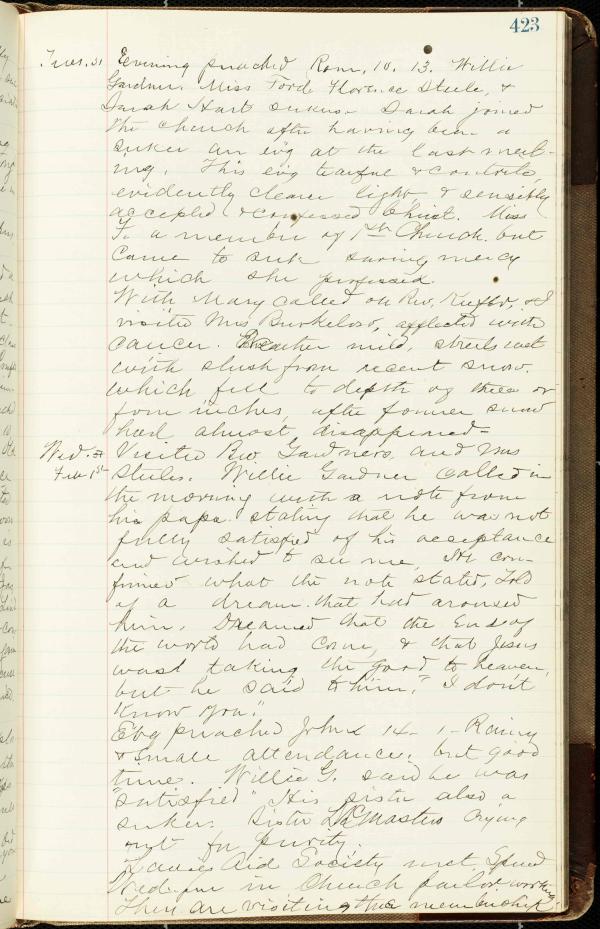 423
Tues. 31 Evening preached Rom. 10. 13. Willie
Gardner, Miss Ford, Florence Steele, &
Sarah Hart seekers. Sarah joined
the church after having been a
seeker an evg at the last meet-
ing. This evg tearful & contrite,
evidently clearer light, & sensibly
accepted & confessed Christ. Miss
F. a member of 1st Church. but
came to seek saving mercy
which she professed.
With Mary called on Bro. & I
visited Mrs afflicted with
cancer. Weather mild, streets wet
with slush from recent snow.
which fell to depth of three or
four inches, after former snow
had almost disappeared-
Wed. Visited Bro. Gardners, and Mrs
Feb 1st Steeles. Willie Gardner called in
the morning with a note from
his papa stating that he was not
fully satisfied of his acceptance
and wished to see me, He con-
firmed what the note stated, Told
of a dream that had aroused
him. Dreamed that the End of
the world had come, & that Jesus
was taking the good to heaven,
but he said to him, "I don't
Know you."
Evg preached John 14 - 1 - Rainy
& small attendance, but good
time. Willie G. said he was
"satisfied" His sister also a
seeker. Sister McMasters crying
out for purity.
Ladies Aid Society met
Wed. in Church parlor. working
They are visiting the membership